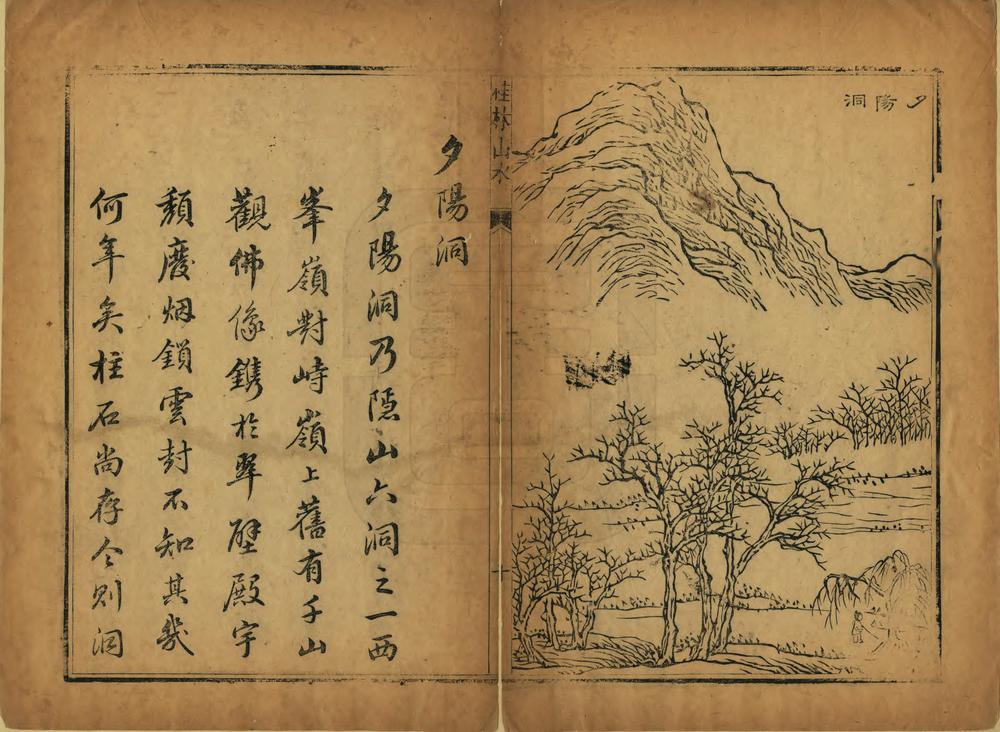 夕陽洞
桂林山水
夕陽洞
夕陽洞乃隱山六洞之一西
峯嶺對峙嶺上舊有千山
觀佛像鐫於翠壁殿宇
頹廢烟鎖雲封不知其幾
何年矣柱石尚存今則洞